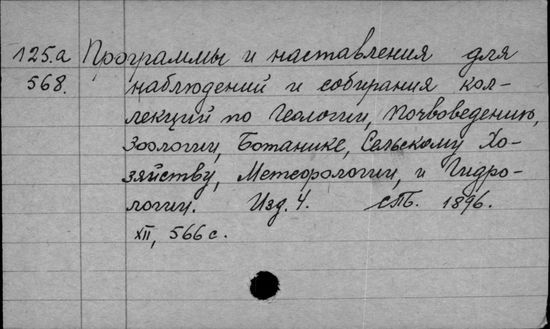 125.а Программы и наставления для
568. наблюдений и собирания кол-
лекций по Геологии, Почвоведению,
Зоологии, Ботанике, Сельскому Хо-
зяйству, Метеорологии, и Гидро-
логии. Изд. 4. СПб. 1896.
XII, 566 с.